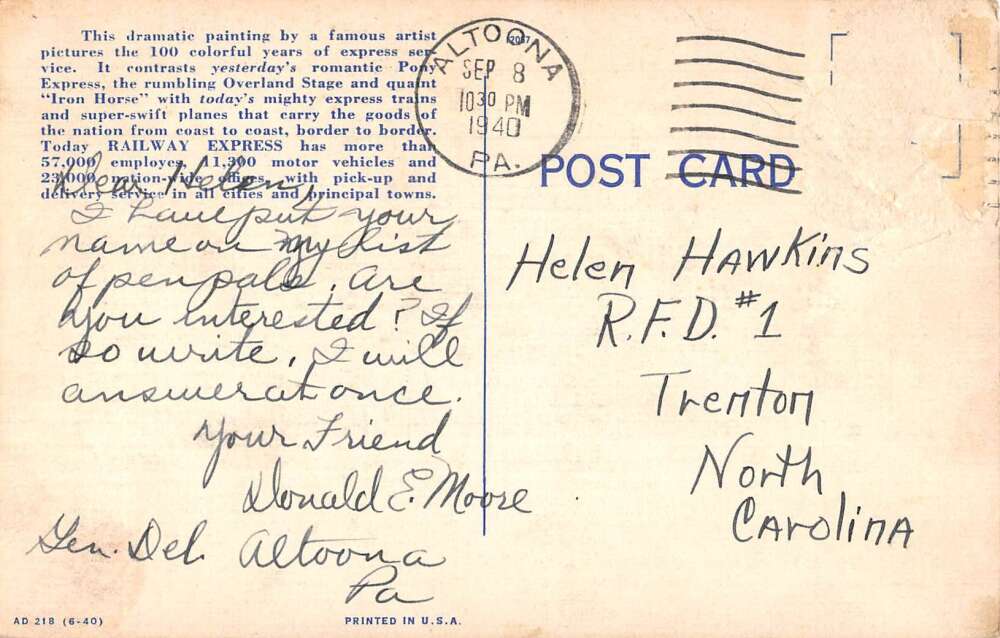 This dramatic painting by a famous artist
pictures the 100 colorful years of express ser-
vice. It contrasts yesterday's romantic Pony
Express, the rumbling Overland Stage and quaint
"Iron Horse" with today's mighty express trains
and super-swift planes that carry the goods of
the nation from coast to coast, border to border.
Today RAILWAY EXPRESS has more than
57,000 employes, 11,300 motor vehicles and
23,000 nation-wide offices, with pick-up and
delivery service in all cities and principal towns.
ALTOONA
SEP 8
1030 PM
1940
PA.
POST CARD
Dear Helen,
I have put your
name on my list
of pen pals. Are
you interested? If
so write, I will
answer at once.
Your Friend
Donald E. Moore
Gen. Del. Altoona
Pa
Helen Hawkins
R.F.D. #1
Trenton
North
Carolina
AD 218 (6-40)
PRINTED IN U.S.A.